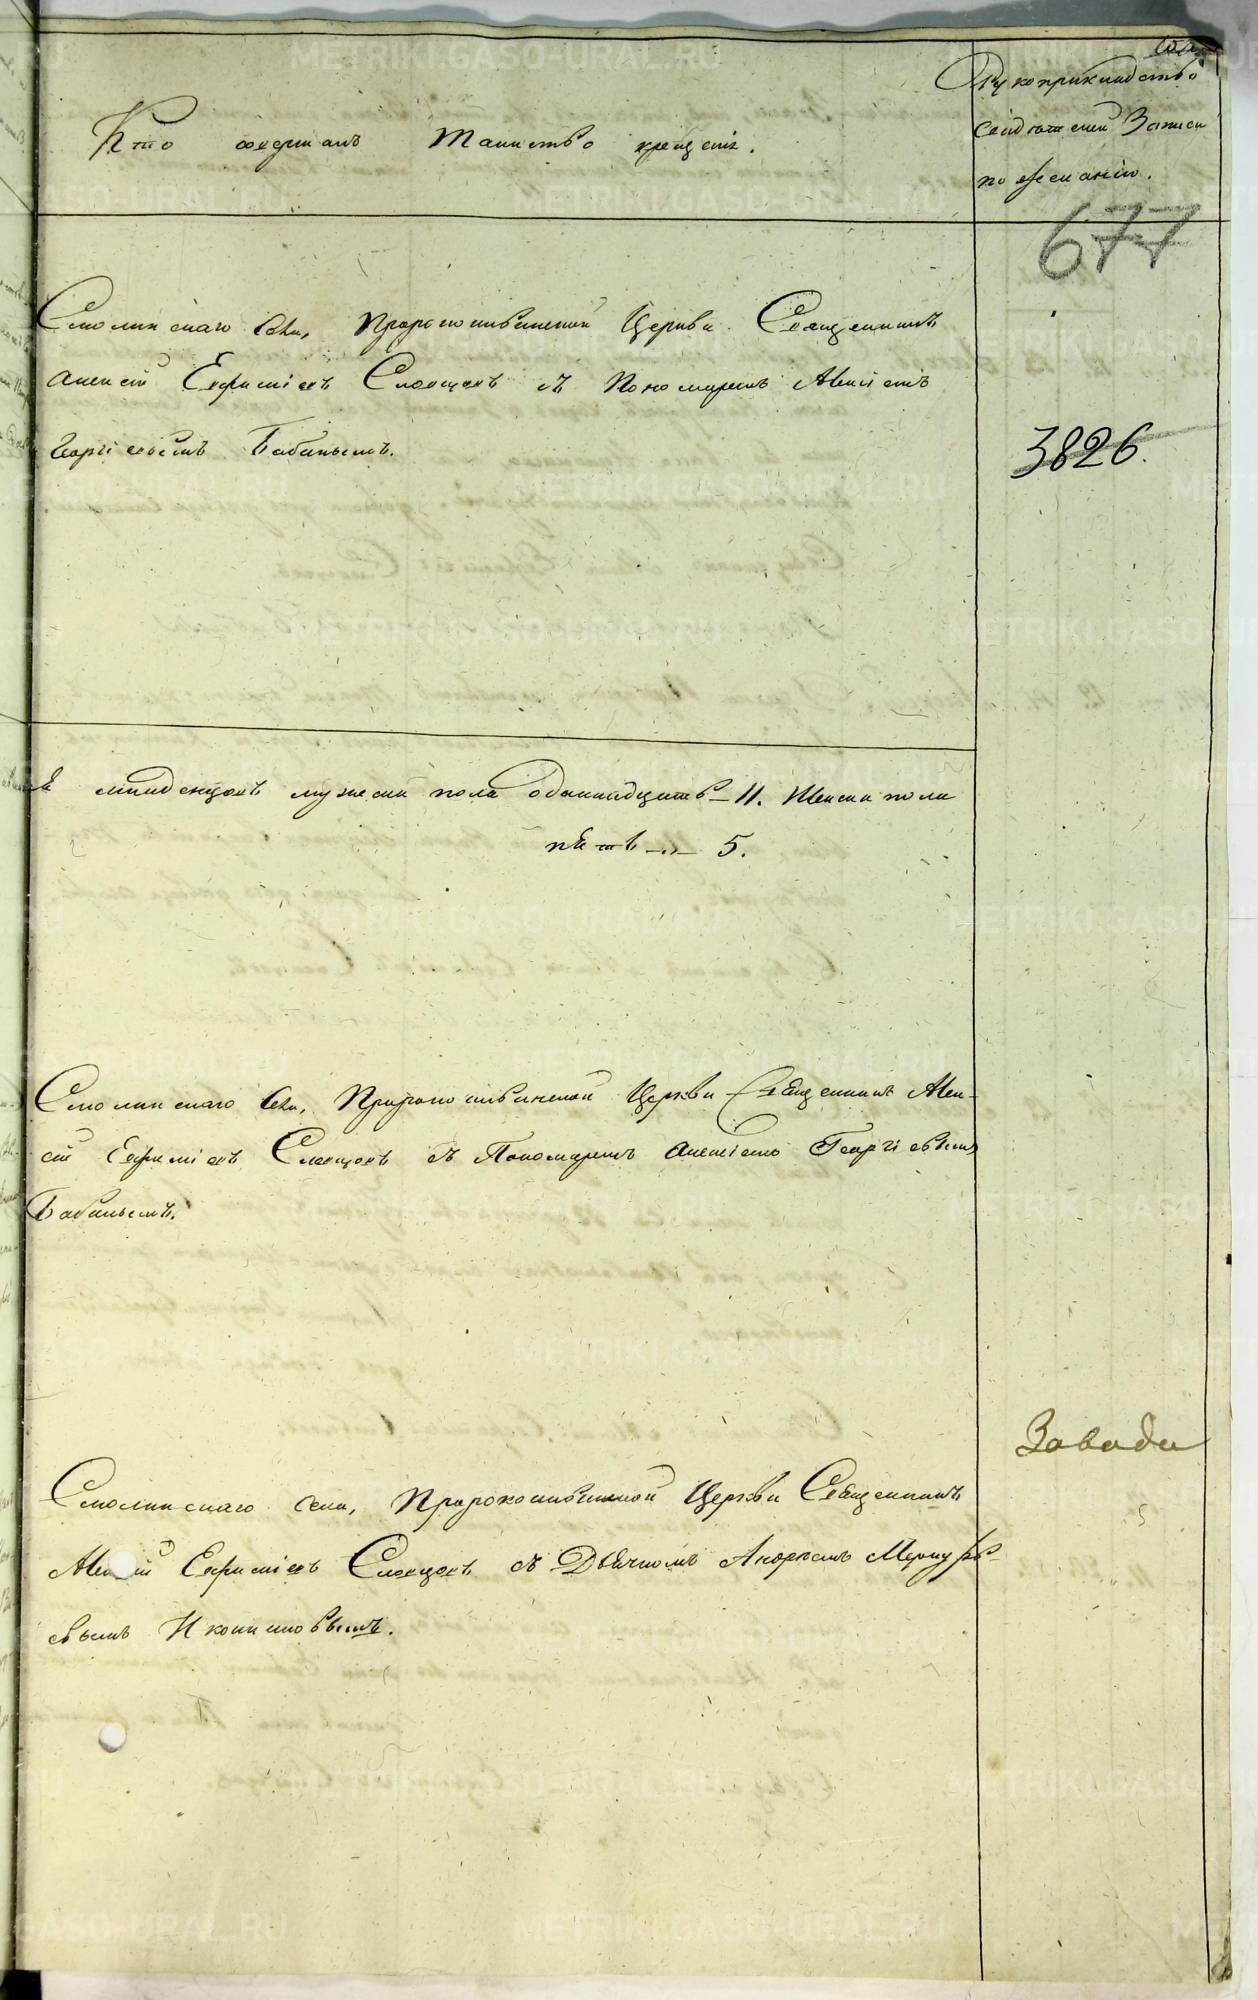 Кто совершалъ Таинство крещенія.
Рукоприкладство
свидѣтелей Записи
по желанію.
677
Смолинскаго Села, Пророкоильинской Церкви Священникъ
Алексѣй Ефиміевъ Словцовъ съ Пономаремъ Алексіемъ
Георгіевымъ Бабинымъ.
3826.
младенцовъ мужеска пола одиннадцать - 11. Женска пола
пять -.- 5.
Смолинскаго Села, Пророкоильинской Церкви Священникъ Алек-
сѣй Ефиміевъ Словцовъ съ Пономаремъ Алексіемъ Георгіевымъ
Бабинымъ.
Смолинскаго Села, Пророкоильинской Церкви Священникъ
Алексѣй Ефиміевъ Словцовъ съ Дьячкомъ Андреемъ Меркурь-
евымъ Иконниковымъ.
METRIKI.GASO-URAL.RU